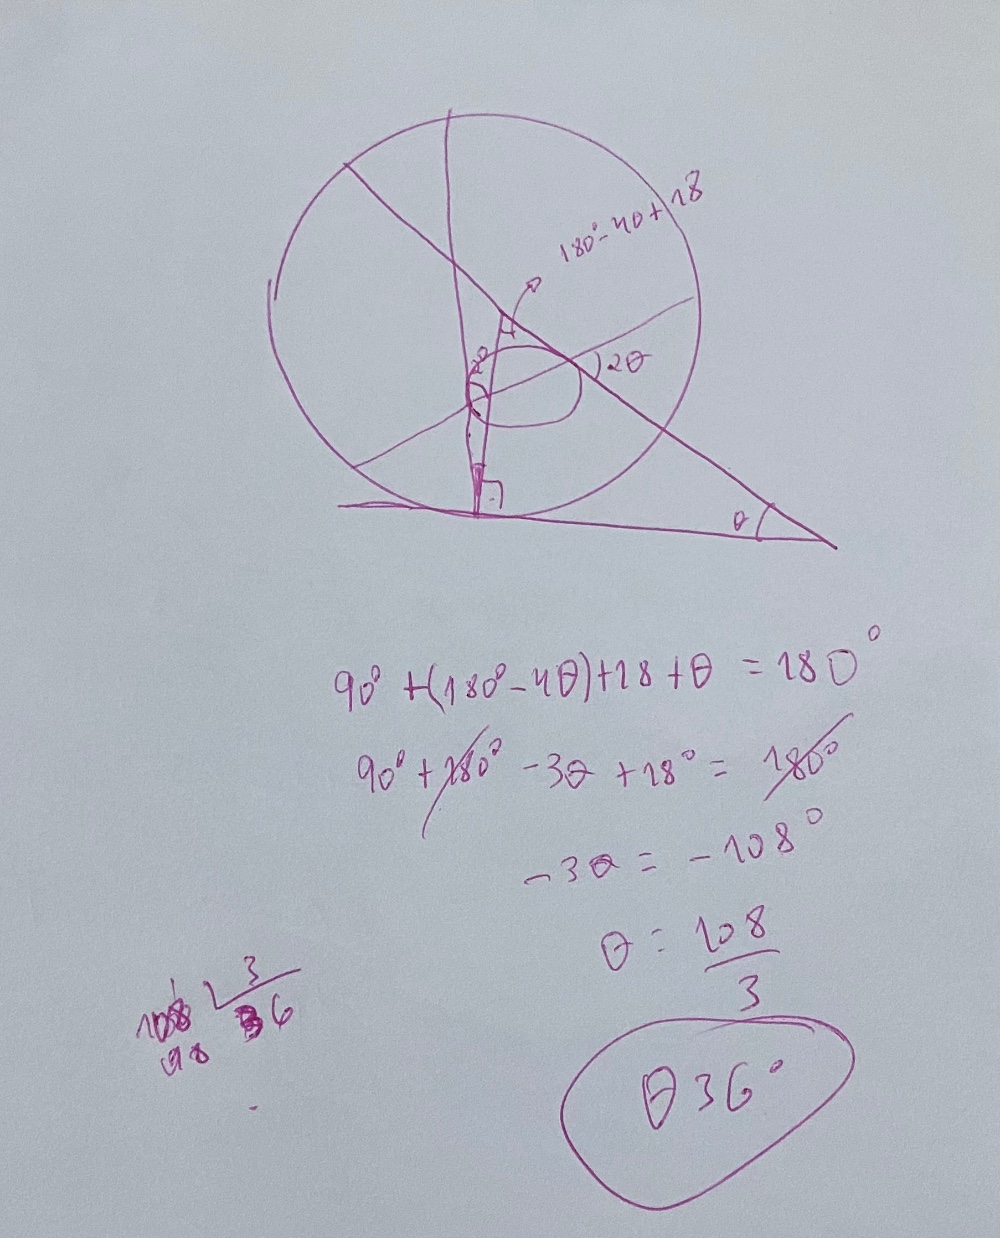 180°-4θ+18
2θ
θ
90° +(180°-4θ)+18 +θ = 180°
90° + 180° -3θ +18° = 180°
-3θ = -108°
θ = 108
3
108 3
98 36
θ 36°